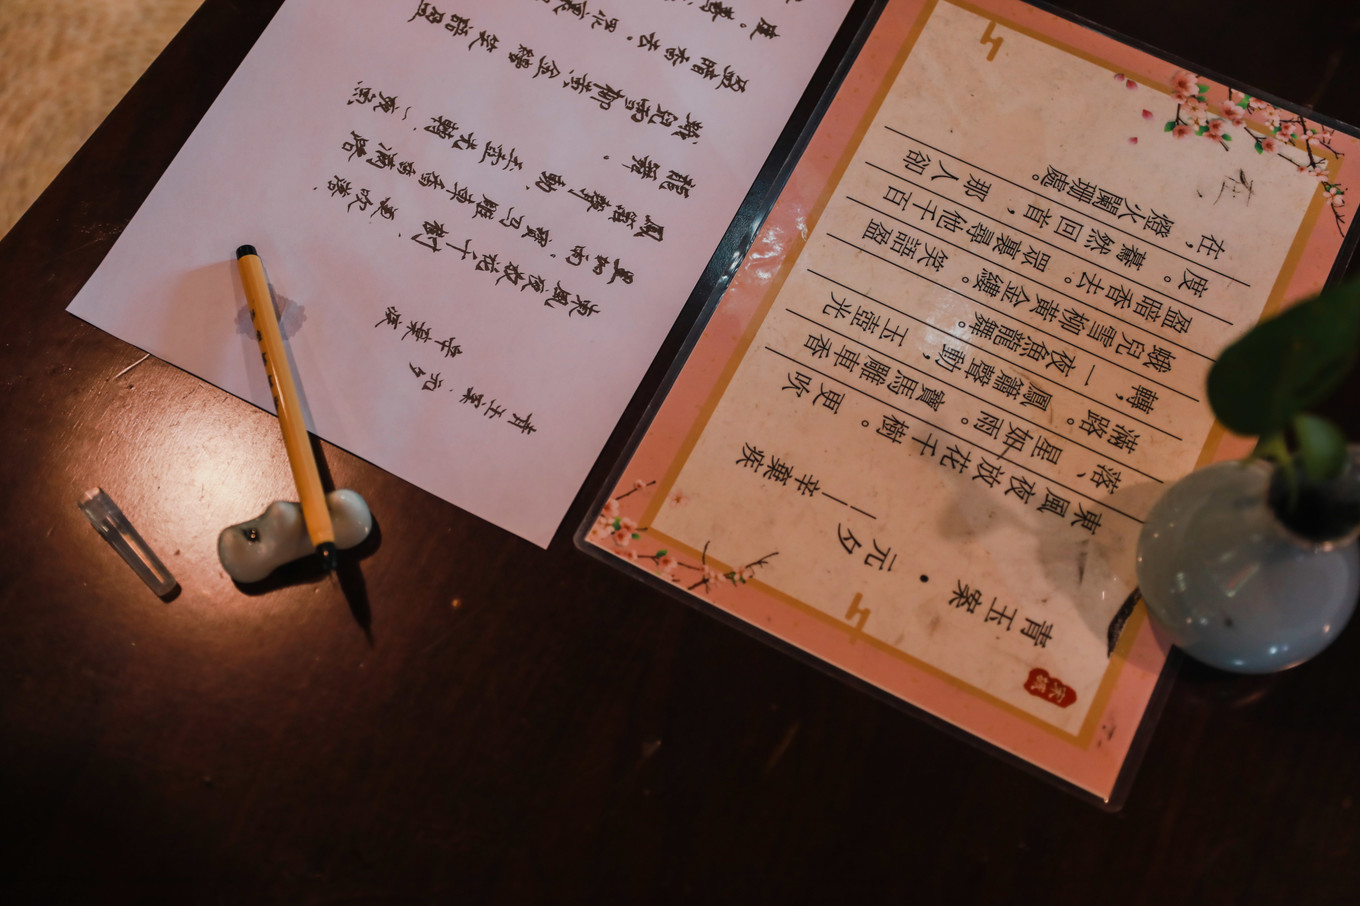 青玉案•元夕
—辛棄疾
東風夜放花千樹。更吹
落、星如雨。寶馬雕車香
滿路。鳳簫聲動，玉壺光
轉，一夜魚龍舞。
蛾兒雪柳黃金縷。笑語盈
盈暗香去。眾裏尋他千百
度。驀然回首，那人卻
在，燈火闌珊處。
青玉案.元夕
辛棄疾
東風夜放花千樹，更吹落、
星如雨，寶马雕車香滿路
鳳簫聲動，玉壺光轉，一夜魚
龍舞。
蛾兒雪柳黃金縷笑語盈
盈暗香去。眾裏
度。驀